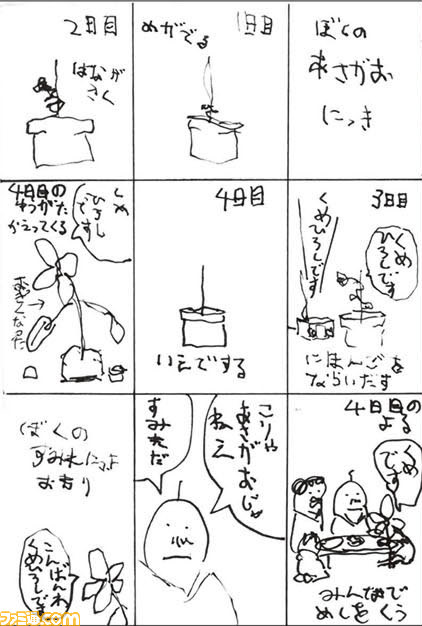 ぼくの
あさがお
にっき
1日目
めがでる
2日目
はなが
さく
3日目
くめ
ひろしです
くめひろしです
にほんごを
ならいだす
4日目
いえでする
4日目の
ゆうがた
かえってくる
くめ
ひろし
です
おおきくなった
4日目の
よる
くめ
です
みんなで
めしをくう
こりゃ
あさがおじゃ
ねえ
すみれだ
ぼくの
すみれにっき
おわり
こんばんわ
くめひろしです
ファミ通.com